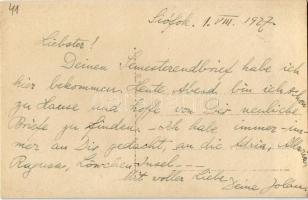 41
Siófok. 1. VIII. 1927.
Liebster!
Deinen Semesterendbrief habe ich
hier bekommen. Heute Abend bin ich schon
zu Hause und hoffe von Dir neuliche
Briefe zu finden. – Ich habe immer-im-
mer an Dir gedacht, an die Adria,
Ragusa, Löwchen-Insel – – –
Mit voller Liebe
Deine Jolan